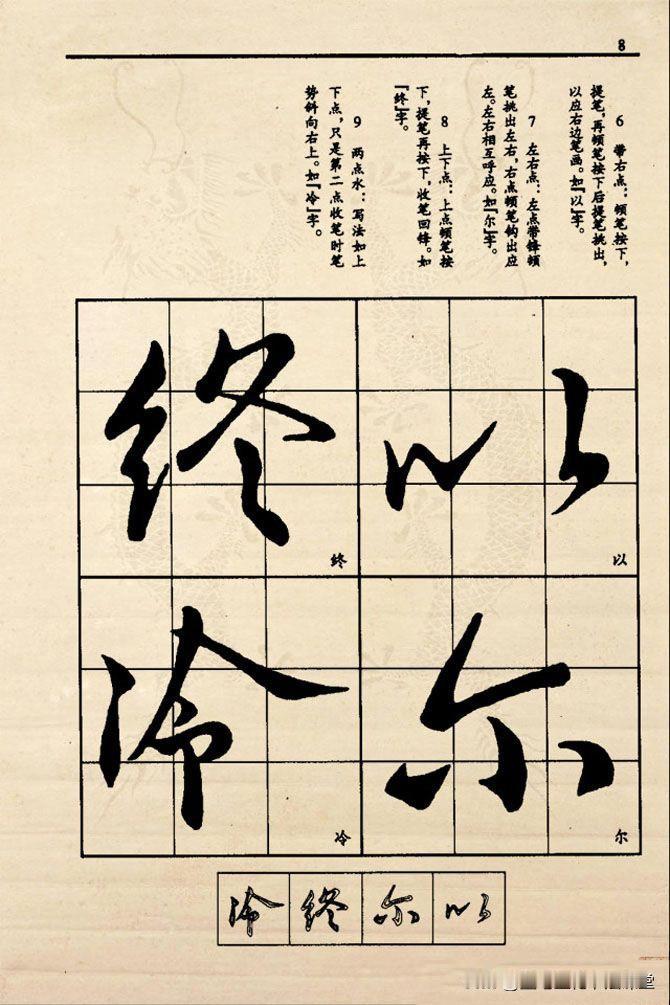 8
6 带右点：顿笔按下，
提笔，再顿笔按下后提笔挑出，
以应右边笔画。如『以』字。
7 左右点：左点带锋顿
笔挑出左右，右点顿笔钩出应
左。左右相互呼应。如『尔』字。
8 上下点：上点顿笔按
下，提笔再按下，收笔回锋。如
『终』字。
9 两点水：写法如上
下点，只是第二点收笔时笔
势斜向右上。如『冷』字。
以
以
尔
尔
终
终
冷
冷
冷 终 尔 以